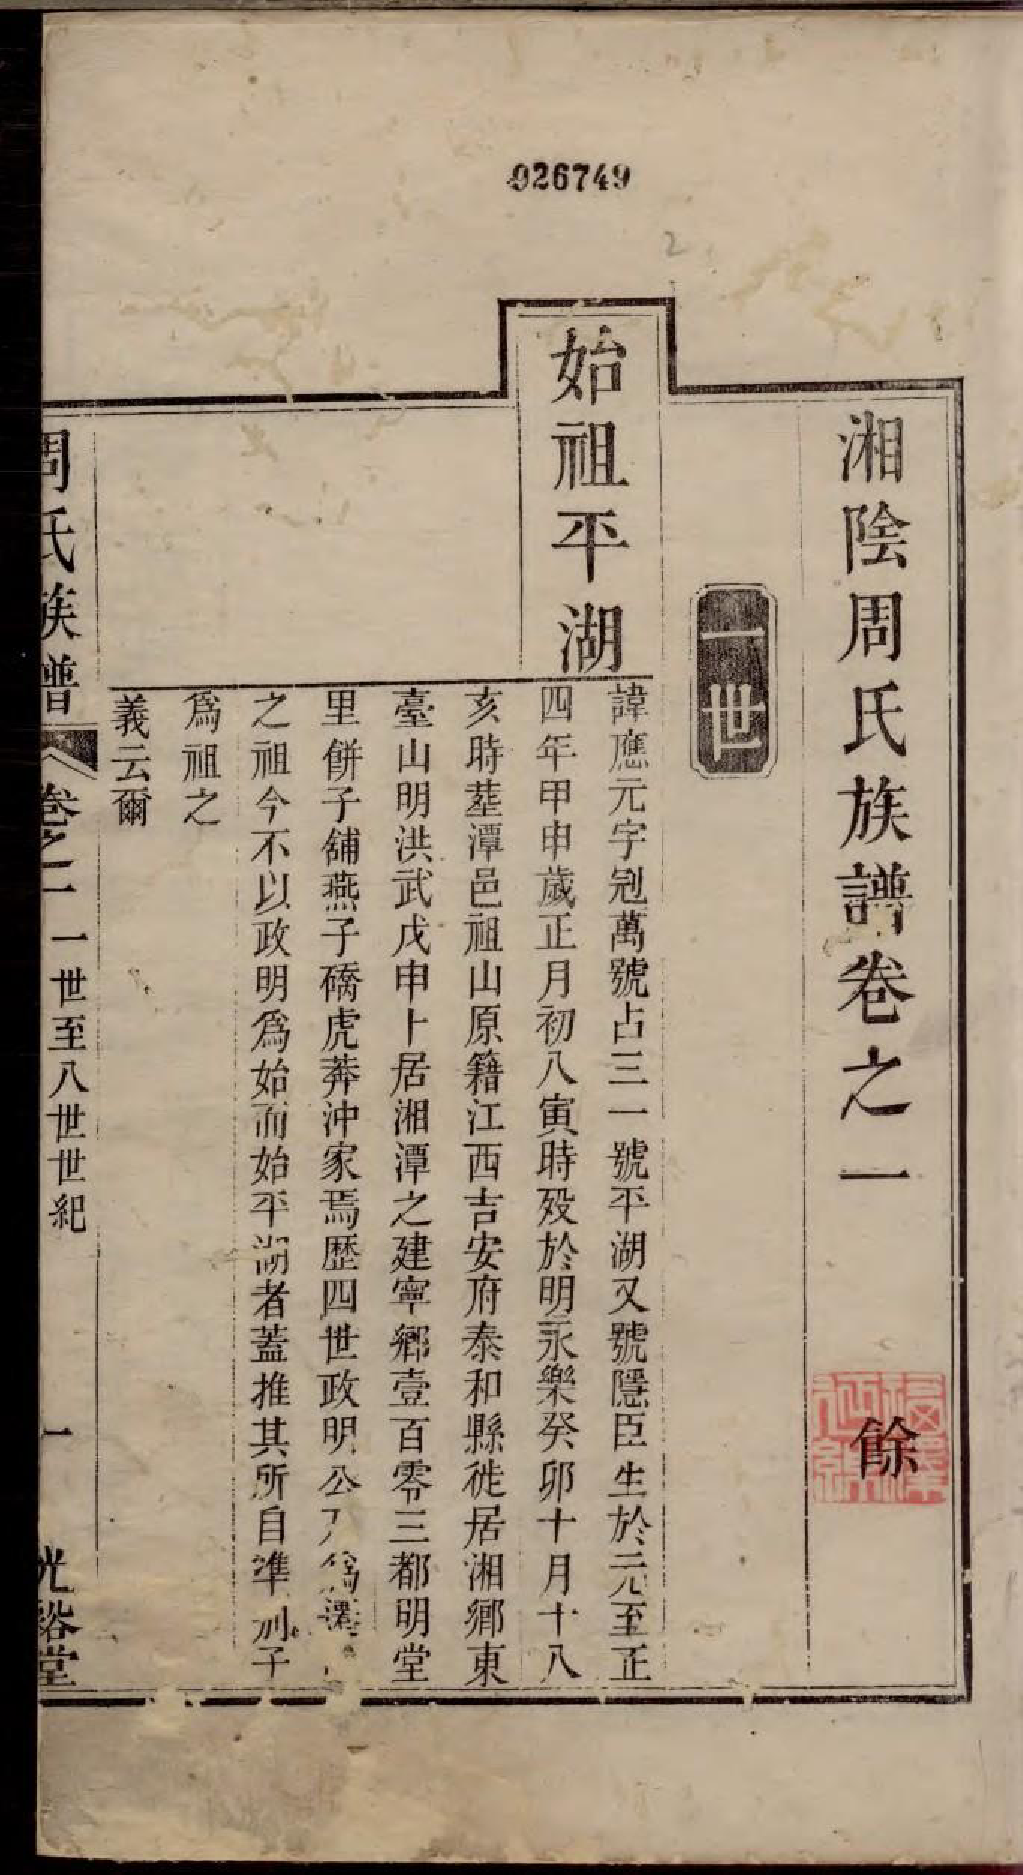 026749
2
湘陰周氏族譜卷之一
餘
一世
始祖平湖
諱應元字冠萬號占三一號平湖又號隱臣生於元至正
四年甲申歲正月初八寅時歿於明永樂癸卯十月十八
亥時塟潭邑祖山原籍江西吉安府泰和縣徙居湘鄉東
臺山明洪武戊申卜居湘潭之建寧鄉壹百零三都明堂
里餅子舖燕子磱虎莽沖家焉歷四世政明公乃爲遷
之祖今不以政明爲始而始平湖者蓋推其所自準別子
爲祖之
義云爾
周氏族譜
卷之一
一世至八世世紀
一
光裕堂